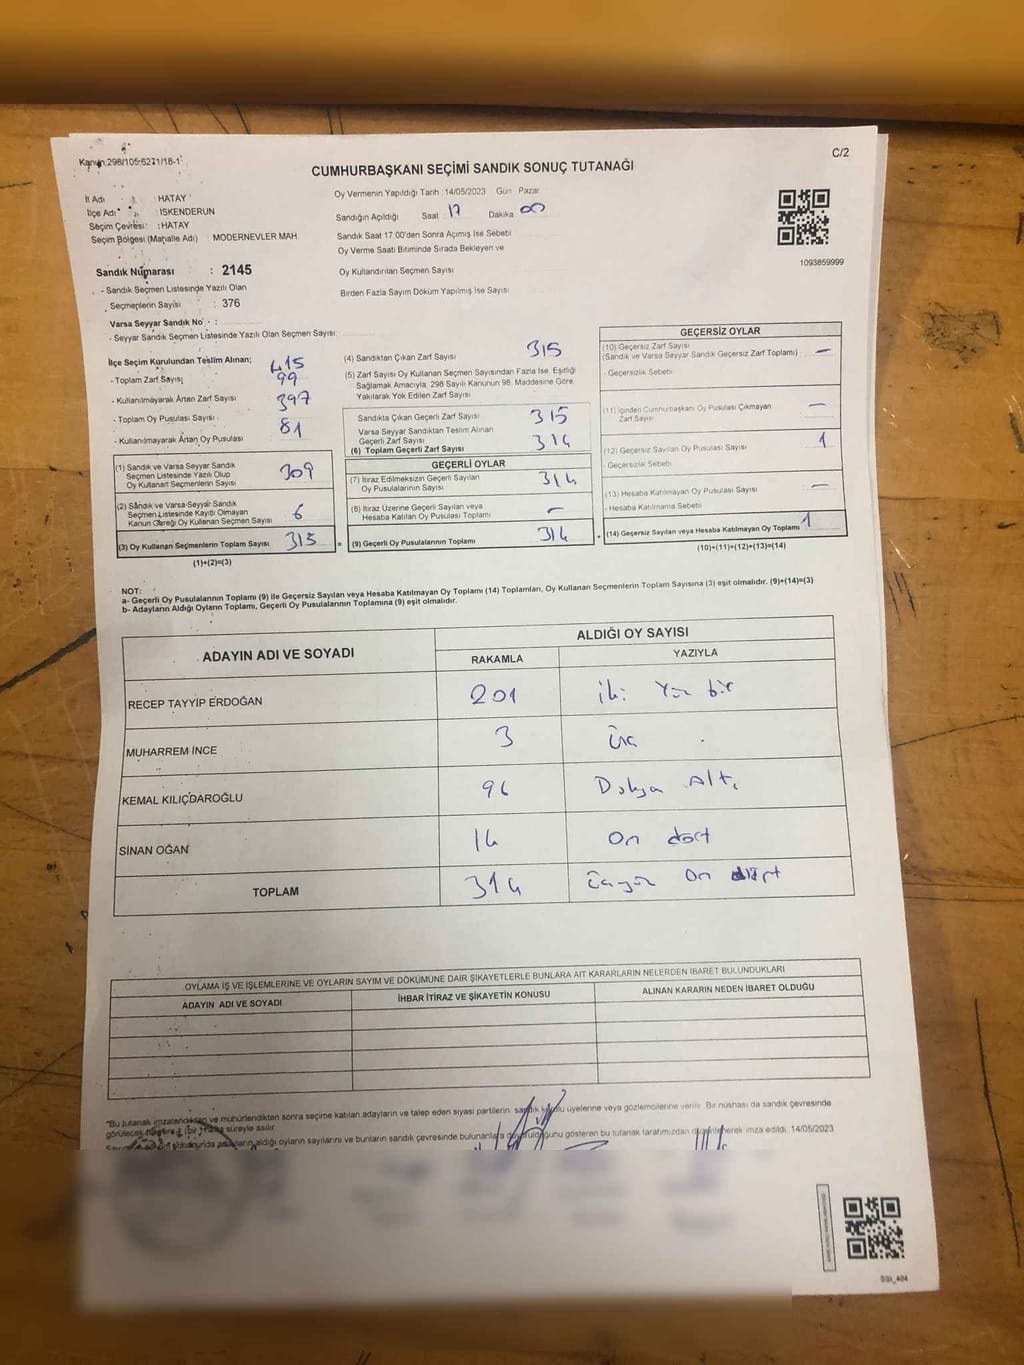 Kanun 298/105-6271/18-1
C/2
CUMHURBAŞKANI SEÇİMİ SANDIK SONUÇ TUTANAĞI
İl Adı : HATAY
İlçe Adı : İSKENDERUN
Seçim Çevresi : HATAY
Seçim Bölgesi (Mahalle Adı) : MODERNEVLER MAH
Sandık Numarası : 2145
- Sandık Seçmen Listesinde Yazılı Olan
Seçmenlerin Sayısı : 376
Varsa Seyyar Sandık No :
- Seyyar Sandık Seçmen Listesinde Yazılı Olan Seçmen Sayısı:
Oy Vermenin Yapıldığı Tarih : 14/05/2023 Gün Pazar
Sandığın Açıldığı Saat 17 Dakika 00
Sandık Saat 17:00'den Sonra Açımış İse Sebebi
Oy Verme Saati Bitiminde Sırada Bekleyen ve
Oy Kullandırılan Seçmen Sayısı
Birden Fazla Sayım Döküm Yapılmış İse Sayısı
1093859999
İlçe Seçim Kurulundan Teslim Alınan;
- Toplam Zarf Sayısı 415
- Kullanılmayarak Artan Zarf Sayısı 99
- Toplam Oy Pusulası Sayısı 397
- Kullanılmayarak Artan Oy Pusulası 81
(1) Sandık ve Varsa Seyyar Sandık
Seçmen Listesinde Yazılı Olup
Oy Kullanan Seçmenlerin Sayısı 309
(2) Sandık ve Varsa Seyyar Sandık
Seçmen Listesinde Kayıtlı Olmayan
Kanun Gereği Oy Kullanan Seçmen Sayısı 6
(3) Oy Kullanan Seçmenlerin Toplam Sayısı 315
(1)+(2)=(3)
(4) Sandıktan Çıkan Zarf Sayısı 315
(5) Zarf Sayısı Oy Kullanan Seçmen Sayısından Fazla İse, Eşitliği
Sağlamak Amacıyla, 298 Sayılı Kanunun 98. Maddesine Göre
Yakılarak Yok Edilen Zarf Sayısı
Sandıkta Çıkan Geçerli Zarf Sayısı 315
Varsa Seyyar Sandıktan Teslim Alınan
Geçerli Zarf Sayısı
(6) Toplam Geçerli Zarf Sayısı 314
GEÇERLİ OYLAR
(7) İtiraz Edilmeksizin Geçerli Sayılan
Oy Pusulalarının Sayısı 314
(8) İtiraz Üzerine Geçerli Sayılan veya
Hesaba Katılan Oy Pusulası Toplamı –
= (9) Geçerli Oy Pusulalarının Toplamı 314 +
GEÇERSİZ OYLAR
(10) Geçersiz Zarf Sayısı
(Sandık ve Varsa Seyyar Sandık Geçersiz Zarf Toplamı) –
- Geçersizlik Sebebi
(11) İçinden Cumhurbaşkanı Oy Pusulası Çıkmayan
Zarf Sayısı –
(12) Geçersiz Sayılan Oy Pusulası Sayısı 1
- Geçersizlik Sebebi
(13) Hesaba Katılmayan Oy Pusulası Sayısı –
- Hesaba Katılmama Sebebi
(14) Geçersiz Sayılan veya Hesaba Katılmayan Oy Toplamı 1
(10)+(11)+(12)+(13)=(14)
NOT:
a- Geçerli Oy Pusulalarının Toplamı (9) ile Geçersiz Sayılan veya Hesaba Katılmayan Oy Toplamı (14) Toplamları, Oy Kullanan Seçmenlerin Toplam Sayısına (3) eşit olmalıdır. (9)+(14)=(3)
b- Adayların Aldığı Oyların Toplamı, Geçerli Oy Pusulalarının Toplamına (9) eşit olmalıdır.
ADAYIN ADI VE SOYADI
ALDIĞI OY SAYISI
RAKAMLA YAZIYLA
RECEP TAYYİP ERDOĞAN 201 iki Yüz bir
MUHARREM İNCE 3 Üç
KEMAL KILIÇDAROĞLU 96 Doksan Altı
SİNAN OĞAN 14 On dört
TOPLAM 314 Üçyüz On dört
OYLAMA İŞ VE İŞLEMLERİNE VE OYLARIN SAYIM VE DÖKÜMÜNE DAİR ŞİKAYETLERLE BUNLARA AİT KARARLARIN NELERDEN İBARET BULUNDUKLARI
ADAYIN ADI VE SOYADI İHBAR İTİRAZ VE ŞİKAYETİN KONUSU ALINAN KARARIN NEDEN İBARET OLDUĞU
"Bu tutanak imzalandıktan ve mühürlendikten sonra seçime katılan adayların ve talep eden siyasi partilerin sandık kurulu üyelerine veya gözlemcilerine verilir. Bir nüshası da sandık çevresinde
görülecek bir yere 1 (bir) hafta süreyle asılır.
adayların aldığı oyların sayılarını ve bunların sandık çevresinde bulunanlara duyurulduğunu gösteren bu tutanak tarafımızdan düzenlenerek imza edildi. 14/05/2023
SSI_404